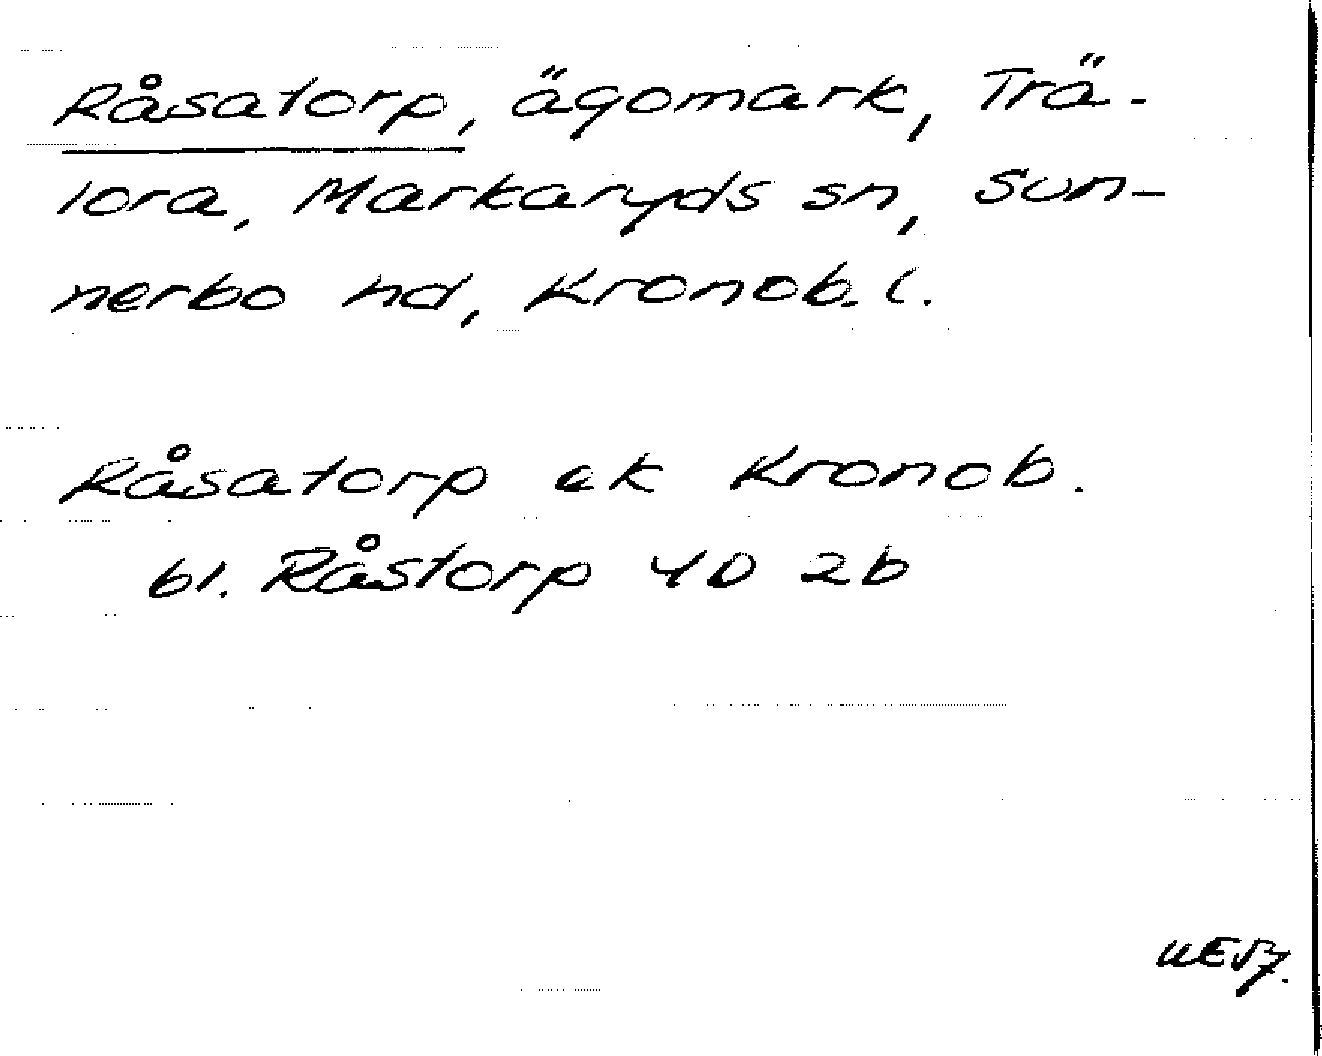 Råsatorp, ägomark, Trä-
lora, Markaryds sn, Sun-
nerbo hd, Kronob. l.
Råsatorp ek Kronob.
bl. Råstorp 4D 2b